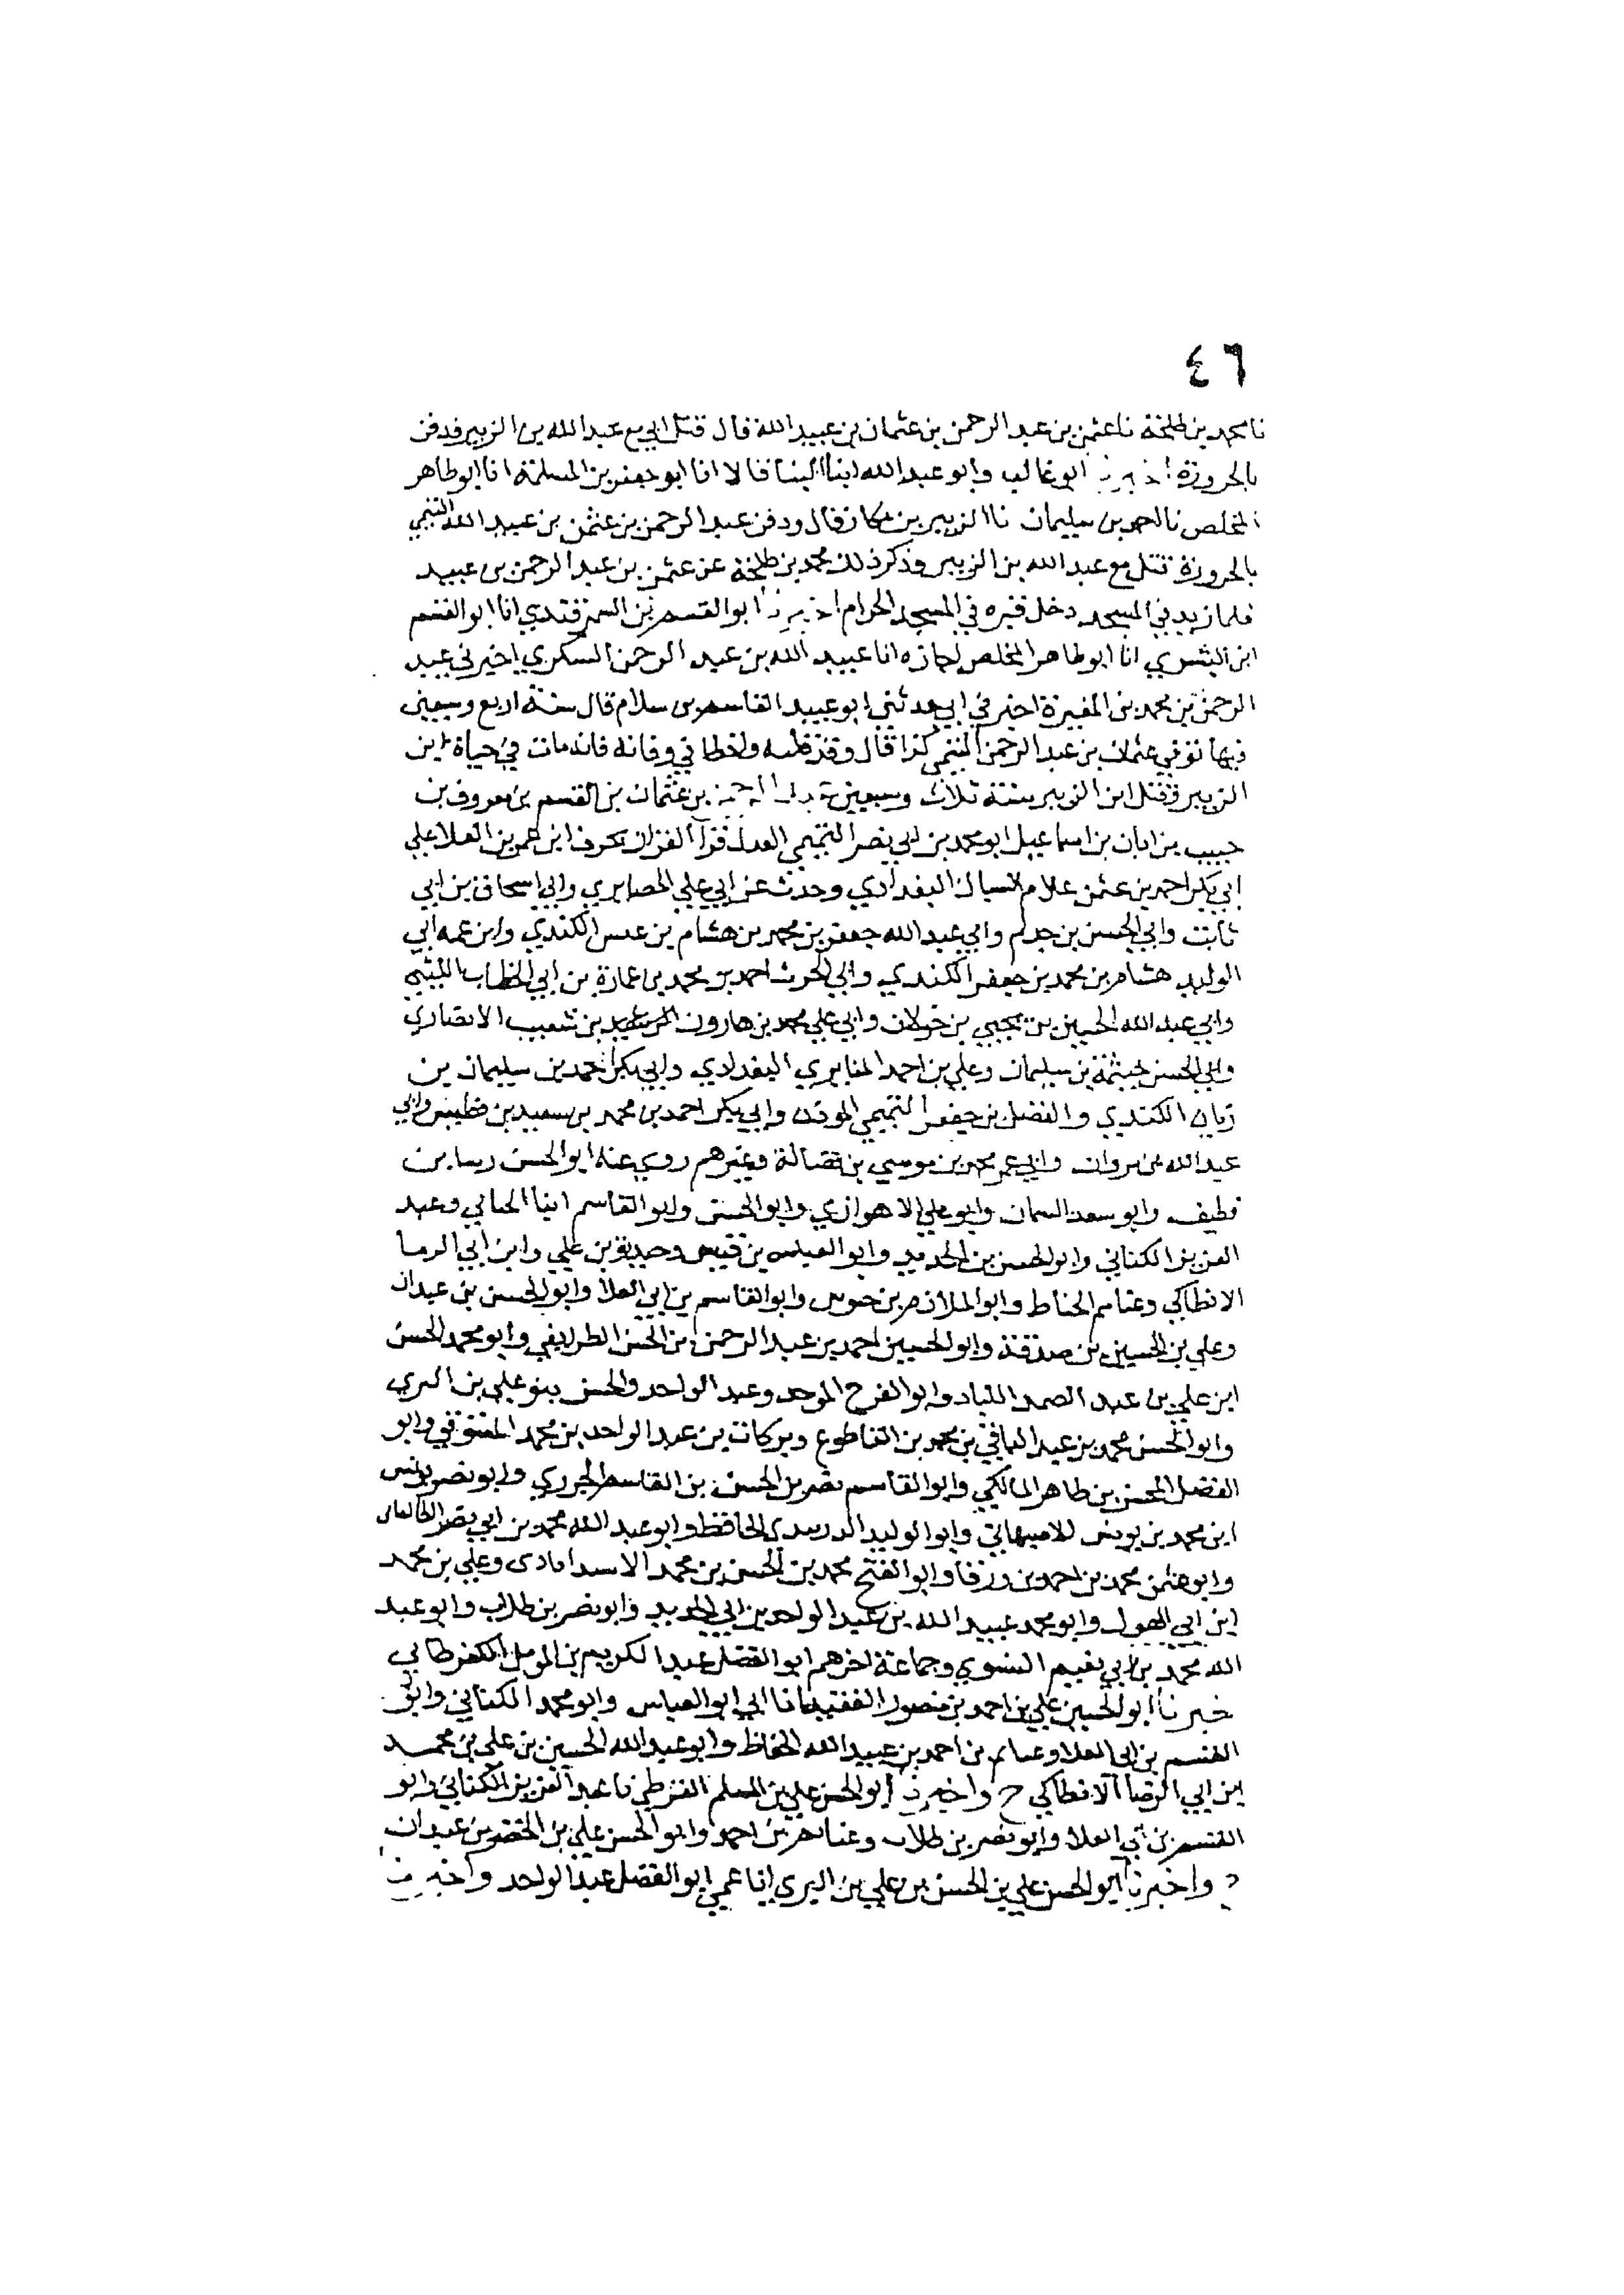 ٤٦
نا محمد بن طلحة نا عثمن بن عبد الرحمن بن عثمان بن عبيد الله قال قتل ابي مع عبد الله بن الزبير فدفن
بالحرورة اخبرنا ابو غالب وابو عبد الله ابنا البنا قالا انا ابو جعفر بن المسلمة انا ابو طاهر
المخلص نا احمد بن سليمان نا الزبير بن بكار قال ودفن عبد الرحمن بن عثمن بن عبيد الله التيمي
بالحرورة قتل مع عبد الله بن الزبير وذكر ذلك محمد بن طلحة عن عثمن بن عبد الرحمن بن عبيد
فلما زيد في المسجد دخل قبره في المسجد الحرام اخبرنا ابو القسم بن السمرقندي انا ابو القسم
ابن البشري انا ابو طاهر المخلص اجازه انا عبيد الله بن عبد الرحمن السكري اخبرني عبد
الرحمن بن محمد بن المغيرة اخبرني ابي حدثني ابو عبيد القاسم بن سلام قال سنة اربع وسبعين
فيها توفي عثمان بن عبد الرحمن التيمي كذا قال وقد قلبه واخطا في وفاته فانه مات في حياة ابن
الزبير وقتل ابن الزبير سنة ثلاث وسبعين عبد الرحمن بن عثمان بن القسم بن معروف بن
حبيب بن ابان بن اسماعيل ابو محمد بن ابي نصر التميمي العدل قرأ القران بحرف ابي عمرو بن العلا علي
ابي بكر احمد بن عثمن غلام السباك البغدادي وحدث عن ابي علي الحصايري وابي اسحاق بن ابي
ثابت وابي الحسن بن حذلم وابي عبد الله جعفر بن محمد بن هشام بن عدبس الكندي وابن عمه ابي
الوليد هشام بن محمد بن جعفر الكندي وابي الحرث احمد بن محمد بن عمارة بن ابي الخطاب الليثي
وابي عبد الله الحسين بن يحيي بن خولان وابي علي محمد بن هارون بن شعيب الانصاري
وابي الحسن خيثمة بن سليمان وعلي بن احمد المنابري البغدادي وابي بكر احمد بن سليمان بن
زبان الكندي والفضل بن جعفر التميمي الموذن وابي بكر احمد بن محمد بن سعيد بن فطيس وابي
عبد الله بن مروان وابي عمر محمد بن موسي بن فضالة وغيرهم روي عنه ابو الحسن رشا بن
نظيف وابو سعد السمان وابو علي الاهوازي وابو الحسن وابو القاسم ابنا الحنائي وعبد
العزيز الكتاني وابو الحسن بن ابي الحديد وابو العباس بن قبيس وحيدرة بن علي وابن ابي الرضا
الانطاكي وغنائم الخياط وابو القاسم بن ابي العلا وابو الحسن بن عبدان
وعلي بن الحسين بن صدقة وابو الحسين احمد بن عبد الرحمن بن الحسن الطرايفي وابو محمد الحسن
ابن علي بن عبد الصمد اللباد وابو الفرج الموحد وعبد الواحد والحسن بنو علي بن البري
وابو الحسن محمد بن عبد الباقي بن محمد بن القاطوع وبركات بن عبد الواحد بن محمد وابو
الفضل المحسن بن طاهر المالكي وابو القاسم نصر بن الحسن بن القاسم وابو نصر يونس
ابن محمد بن يونس الاصبهاني وابو الوليد الدربندي الحافظ وابو عبد الله محمد بن ابي نصر الطالقاني
وابو عثمن محمد بن احمد بن ورقا وابو الفتح محمد بن الحسن بن محمد الاسدابادي وعلي بن محمد
ابن ابي الهول وابو محمد عبيد الله بن عبد الواحد بن ابي الحديد وابو نصر بن طلاب وابو عبد
الله محمد بن ابي نعيم النسوي وجماعة اخرهم ابو الفضل عبد الكريم بن المومل الكفرطابي
اخبرنا ابو الحسن علي بن احمد بن منصور الفقيه انا ابي ابو العباس وابو محمد الكتاني وابو
القسم بن ابي العلا وغنائم بن احمد بن عبيد الله الخياط وابو عبد الله الحسين بن علي بن محمد
ابن ابي الرضا الانطاكي ح واخبرنا ابو الحسن علي بن المسلم الفرضي نا عبد العزيز الكتاني وابو
القسم بن ابي العلا وابو نصر بن طلاب وغنائم بن احمد وابو الحسن علي بن الخضر بن عبدان
ح واخبرنا ابو الحسن علي بن الحسن بن علي بن البري انا عمي ابو الفضل عبد الواحد واخبرنا